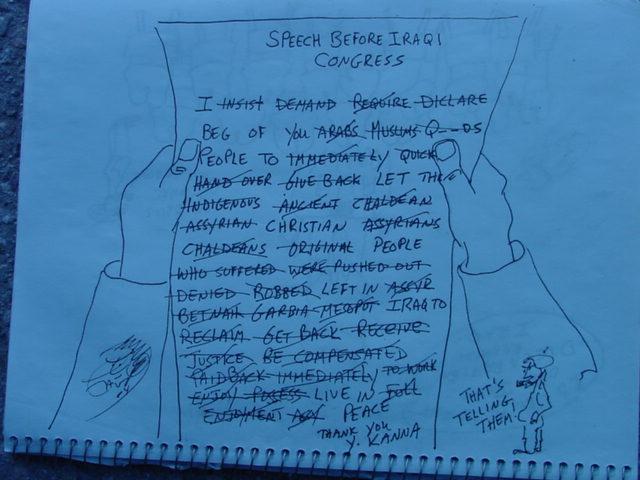 SPEECH BEFORE IRAQI
CONGRESS
I INSIST DEMAND REQUIRE DICLARE
BEG OF YOU ARABS MUSLIMS Q---DS
PEOPLE TO IMMEDIATELY QUICK
HAND OVER GIVE BACK LET THE
INDIGENOUS ANCIENT CHALDEAN
ASSYRIAN CHRISTIAN ASSYRIANS
CHALDEANS ORIGINAL PEOPLE
WHO SUFFERED WERE PUSHED OUT
DENIED ROBBED LEFT IN ASSYR
BETNAH GARBIA MESOPOT IRAQ TO
RECLAIM GET BACK RECEIVE
JUSTICE BE COMPENSATED
PAID BACK IMMEDIATELY TO WORK
ENJOY POSESS LIVE IN FULL
ENJOYMENT PEACE
THANK YOU
Y. KANNA
THAT'S
TELLING
THEM!